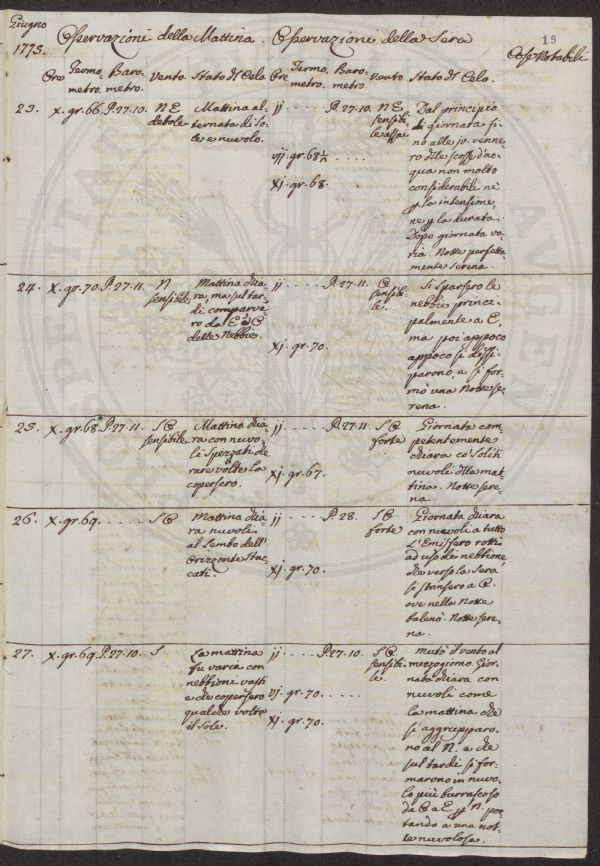 Giugno
1775.
Osservazioni della Mattina.
Osservazioni della Sera
19
Cose Notabili
Ore Termo metro. Baro metro. Vento. Stato del Celo.
Ore Termo metro. Baro metro. Vento Stato del Celo.
23. x. gr. 66. P. 27. 10. N E
debole
Mattina al-
ternata di So-
le e nuvolo.
jj ..... P. 27. 10. N E
sensibi-
le assai
vij. gr. 68 ½ .....
xj. gr. 68.
Dal principio
di giornata fi-
no alle jv. venne-
ro due scosse d'ac-
qua non molto
considerabili nè
p la intensione,
ne p la durata.
Dopo giornata va-
ria. Notte perfetta-
mente serena.
24. x. gr. 70. P. 27. 11. N
sensibile.
Mattina chia-
ra, ma sul tar-
di comparve-
ro da E à O
delle Nebbie.
jj ..... P. 27. 11. O
sensibi-
le.
xj. gr. 70.
Si sparsero le
nebbie princi-
palmente a E,
ma poi appoco
appoco si dissi-
parono, e si for-
mò una Notte se-
rena.
25. x. gr. 68 P. 27. 11. S O
sensibile.
Mattina chia-
ra con nuvo-
li spezzati che
rare volte la
copersero.
jj ..... P. 27. 11. S O
forte
xj. gr. 67.
Giornata com-
petentemente
chiara co' soliti
nuvoli della mat-
tina. Notte sere-
na.
26. x. gr. 69. ..... S O
Mattina chia-
ra nuvoli
al Lembo dell'
Orizzonte Stac-
cati.
jj ..... P. 28. S O
forte
xj. gr. 70.
Giornata chiara
con nuvoli a tutto
L'Emisfero rotti
ad uso di nebbione
che verso la Sera
si strinsero a O.
ove nella Notte
balenò. Notte sere-
na.
27. x. gr. 69. P. 27. 10. S
La mattina
fu varia con
nebbioni vasti
e che copersero
qualche volta
il Sole.
jj ..... P. 27. 10. S O
sensibi-
le.
vj. gr. 70. .....
xj. gr. 70.
Mutò il vento al
mezzogiorno. Gior-
nata chiara con
nuvoli come
la mattina che
si aggrupparo-
no al N. e che
sul tardi si for-
marono in nuvo-
lo più burrascoso
da O a E p N. por-
tando a una not-
te nuvolosa.